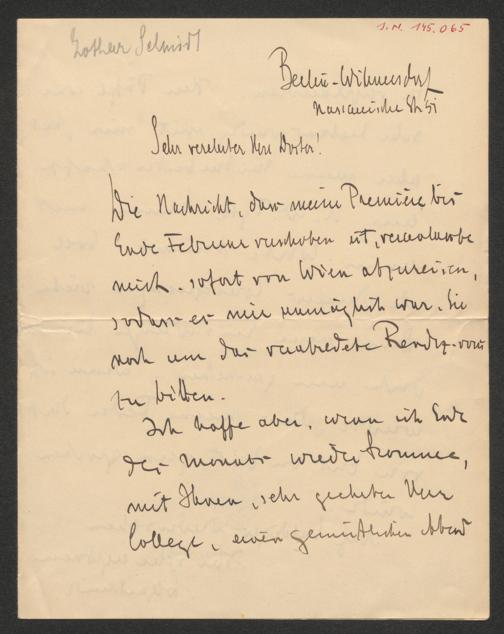 I.N. 145.065
Lothar Schmidt
Berlin-Wilmersdorf
Nassauische Str 51
Sehr verehrter Herr Doctor!
Die Nachricht, dass meine Première bis
Ende Februar verschoben ist, veranlasste
mich, sofort von Wien abzureisen,
sodass es mir unmöglich war, Sie
noch um das verabredete Rendez-vous
zu bitten.
Ich hoffe aber, wenn ich Ende
des Monats wiederkomme,
mit Ihnen, sehr geehrter Herr
College, einen gemütlichen Abend